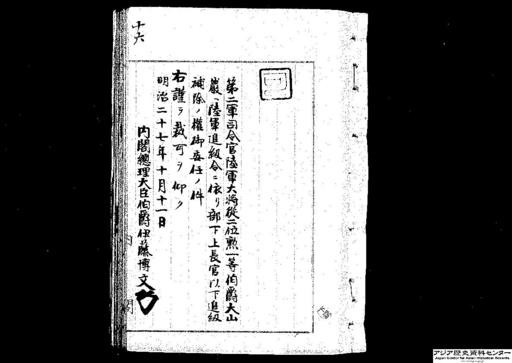 十六
第二軍司令官陸軍大将従二位勲一等伯爵大山
巌ニ陸軍進級令ニ依リ部下上長官以下進級
補除ノ権御委任ノ件
右謹テ裁可ヲ仰ク
明治二十七年十月十一日
内閣総理大臣伯爵伊藤博文
アジア歴史資料センター
Japan Center for Asian Historical Records